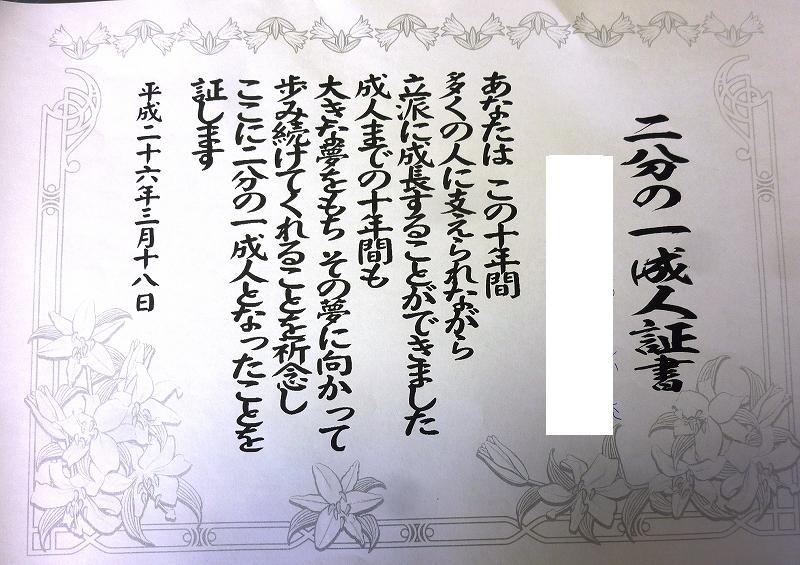 二分の一成人証書
あなたは この十年間
多くの人に支えられながら
立派に成長することができました
成人までの十年間も
大きな夢をもち その夢に向かって
歩み続けてくれることを祈念し
ここに二分の一成人となったことを
証します
平成二十六年三月十八日